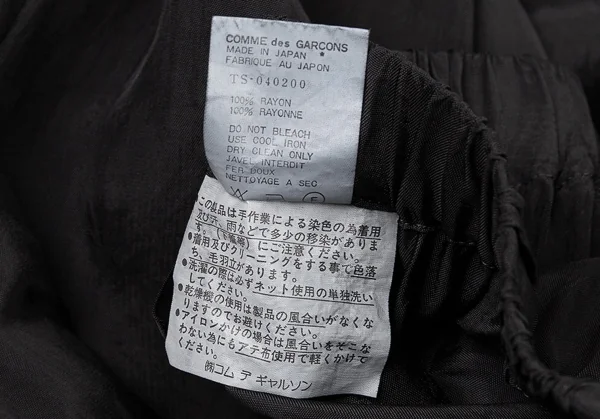 COMME des GARCONS
MADE IN JAPAN *
FABRIQUE AU JAPON
TS-040200
100% RAYON
100% RAYONNE
DO NOT BLEACH
USE COOL IRON
DRY CLEAN ONLY
JAVEL INTERDIT
FER DOUX
NETTOYAGE A SEC
この製品は手作業による染色の為着用
及び汗、雨などで多少の移染がありま
す。にご注意ください。
●着用及びクリーニングをする事で色落
ち、毛羽立があります。
●洗濯の際は必ずネット使用の単独洗い
してください。
●乾燥機の使用は製品の風合いがなくな
りますのでお避けください。
●アイロンかけの場合は風合いをそこな
わない為にもアテ布使用で軽くかけて
ください。
㈱コム デ ギャルソン